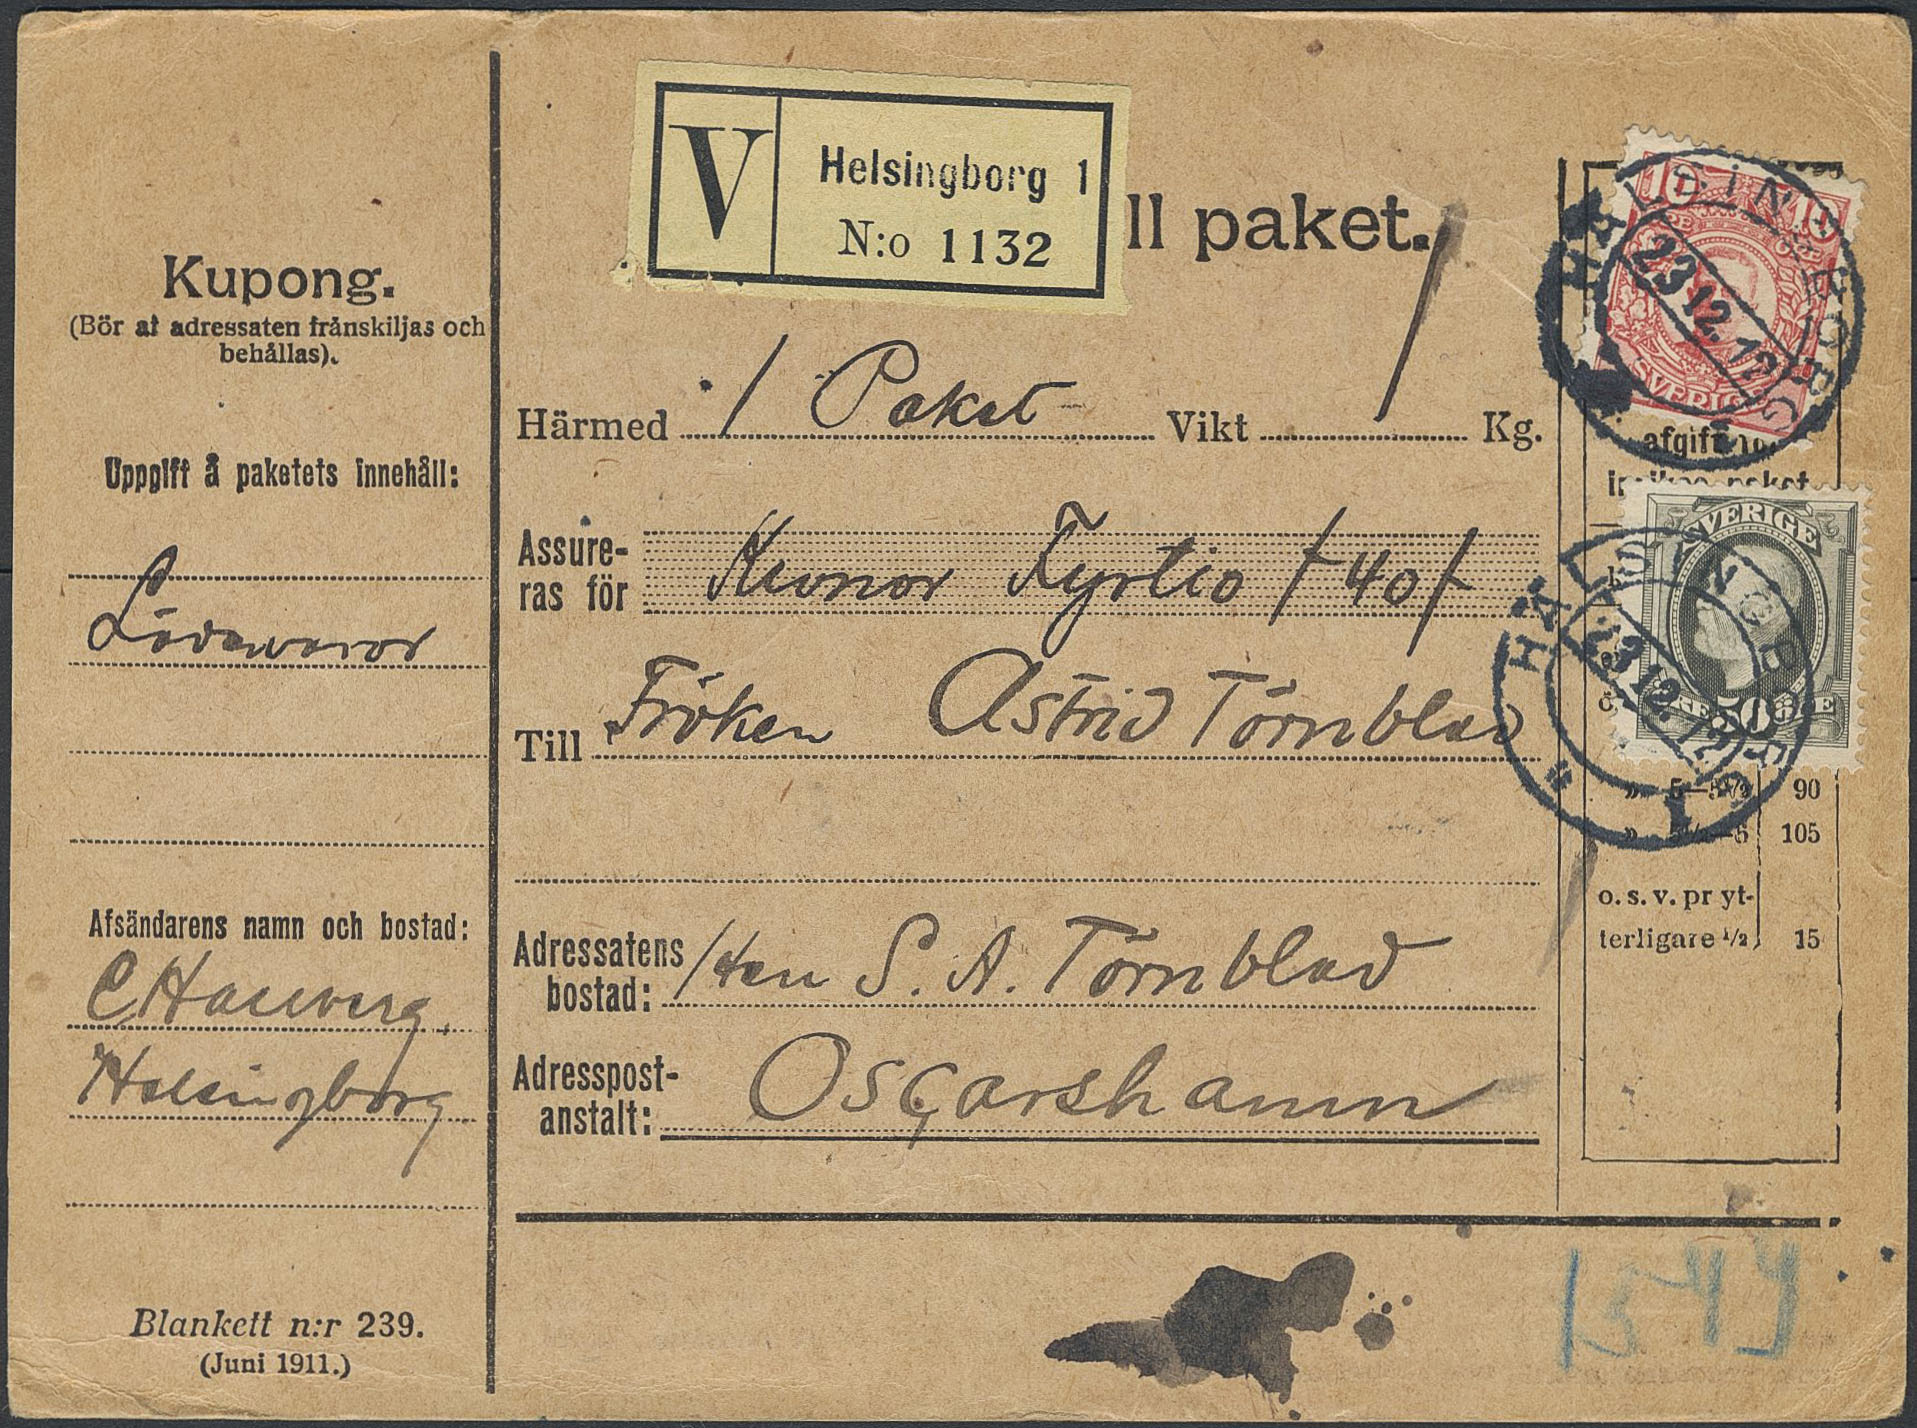 Kupong.
(Bör af adressaten frånskiljas och
behållas).
Uppgift å paketets innehåll:
Afsändarens namn och bostad:
Helsingborg
Blankett n:r 239.
(Juni 1911.)
V
Helsingborg 1
N:o 1132
ll paket.
Härmed 1 Paket Vikt 1 Kg.
Assure-
ras för
Kronor Fyrtio /40/
Till Fröken Astrid Törnblad
Adressatens
bostad:
S. A. Törnblad
Adresspost-
anstalt:
Oscarshamn
10 10
SVERIGE
HÄLSINGBORG
23.12.12
1
afgift
paket
SVERIGE
50
HÄLSINGBORG
23.12.12
1
» 5—5½ 90
» 5½—6 105
o. s. v. pr yt-
terligare ½ 15